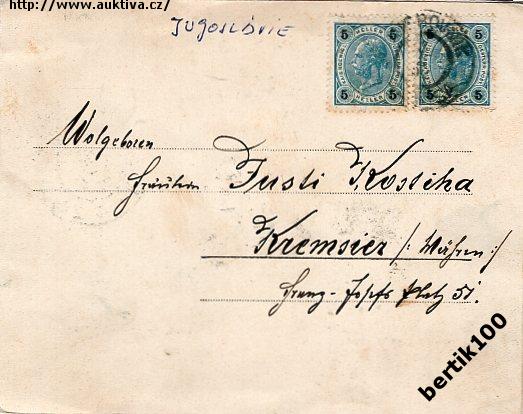 http://www.auktiva.cz/
Jugoslávie
5 HELLER 5
5 HELLER 5
5 5
5 5
Wolgeboren
Fräulein Justi Kosscha
Kremsier /: Mähren :/
Franz-Josefs Platz 51.
bertik100